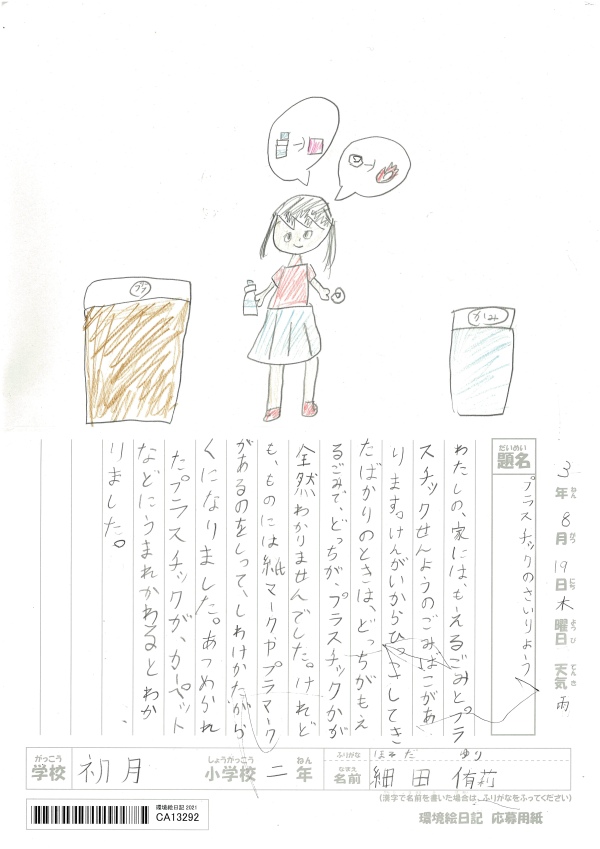 プラ
かみ
3年8月19日木曜日 天気 雨
ねん がつ にち ようび てんき
だいめい
題名
プラスチックのさいりよう
わたしの、家には、もーえるごみとプラ
スチックせんようのごみばこがあ
ります。けんがいからひっこしてき
たばかりのときは、どっちがもえ
るごみで、どっちが、プラスチックかが
全然わかりませんでした。けれど
も、ものには紙マークやプラマーク
があるのをしって、しわけかたがら
くになりました。あつめられ
たプラスチックが、カーペット
などにうまれかわるとわか
りました。
がっこう しょうがっこう ねん
学校 初月 小学校 二年
ふりがな ほそだ ゆり
なまえ
名前 細田 侑莉
(漢字で名前を書いた場合は、ふりがなをふってください)
環境絵日記 2021
CA13292
環境絵日記 応募用紙